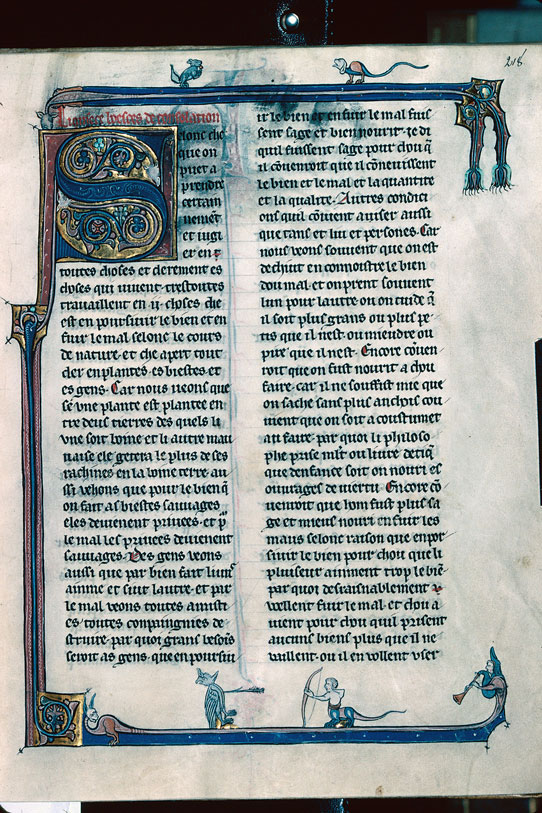 218
Li onses livres de consolation
Selonc che
que on
puet a
prendre
certain
nement
et iugi
er en
toutes choses et clerement es
choses qui uiuent trestoutes
trauaillent en ij choses che
est en poursiuir le bien et en
fuir le mal selonc le cours
de nature et che apert tout
cler en plantes es biestes et
es gens. Car nous ueons que
se une plante est plantee en
tre deus tierres des quels li
vne soit boine et li autre mau
uaise ele getera le plus de ses
rachines en la boine terre au
ssi vehons que pour le bien q̄
on fait as biestes sauuages
eles deuienent priuees et p
le mal les priuees deuienent
sauuages. Des gens veons
aussi que par bien fait lun
aimme et siut lautre et par
le mal veons toutes amist
es toutes conpaignies de
struire par quoi grans besois
seroit as gens que en poursiu
ir le bien et en fuir le mal fuis
sent sage et bien nourit ie di
quil fuissent sage pour chou q̄
il couenroit que il conneuissent
le bien et le mal et la quantite
et la qualite. Autres condici
ons quil couient auiser aussi
que tans et liu et persones. Car
nous veons souuent que on est
dechiut en connoistre le bien
dou mal et on prent souuent
lun pour lautre ou on cuide q̄
il soit plus grans ou plus pe
tis que il nest ou miendre ou
pire que il nest. Encore couen
roit que on fust nourit a chou
faire car il ne souffist mie que
on sache sans plus anchois cou
uient que on soit a coustumet
au faire par quoi li philoso
phe prise
que denfance soit on nourri es
ouurages de uiertu. Encore co
uenroit que hom fust plus sa
ge et mieus nouri en fuir les
maus selonc raison que en por
siuir le bien pour chou que li
pluiseur aimment trop le bie
par quoi desraisnablement
vellent fuir le mal et chou a
uient pour chou quil prisent
aucuns biens plus que il ne
vaillent ou il en vollent vser